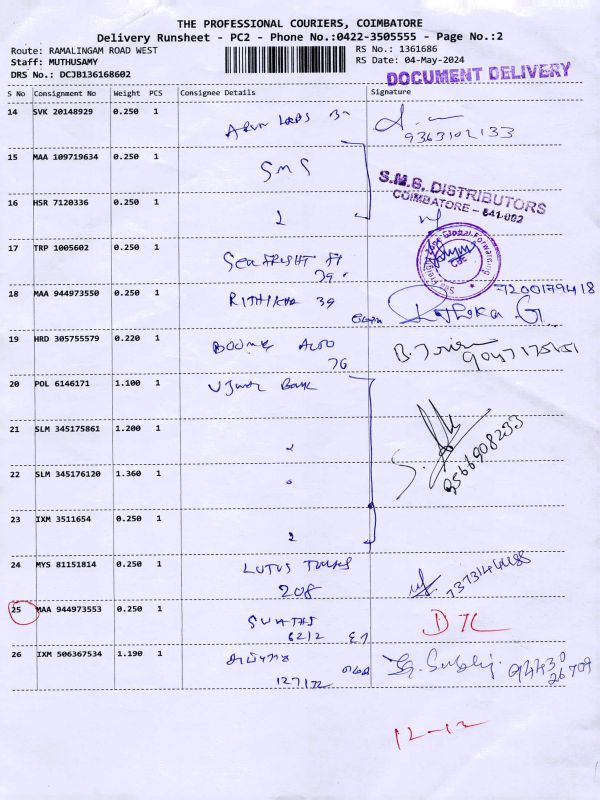 THE PROFESSIONAL COURIERS, COIMBATORE
Delivery Runsheet - PC2 - Phone No.:0422-3505555 - Page No.:2
Route: RAMALINGAM ROAD WEST
Staff: MUTHUSAMY
DRS No.: DCJB136168602
RS No.: 1361686
RS Date: 04-May-2024
DOCUMENT DELIVERY
S No Consignment No Weight PCS Consignee Details Signature
14 SVK 20148929 0.250 1
9363102133
15 MAA 109719634 0.250 1 SMS
S.M.S. DISTRIBUTORS
COIMBATORE - 641 002
16 HSR 7120336 0.250 1
17 TRP 1005602 0.250 1
18 MAA 944973550 0.250 1 RITHIKHA 39
7200179418
19 HRD 305755579 0.220 1
76
20 POL 6146171 1.100 1 Ujwal Bank
21 SLM 345175861 1.200 1
8566908233
22 SLM 345176120 1.360 1
23 IXM 3511654 0.250 1
24 MYS 81151814 0.250 1 LOTUS
208
25 MAA 944973553 0.250 1
6212
26 IXM 506367534 1.190 1
94430
26709
12-12